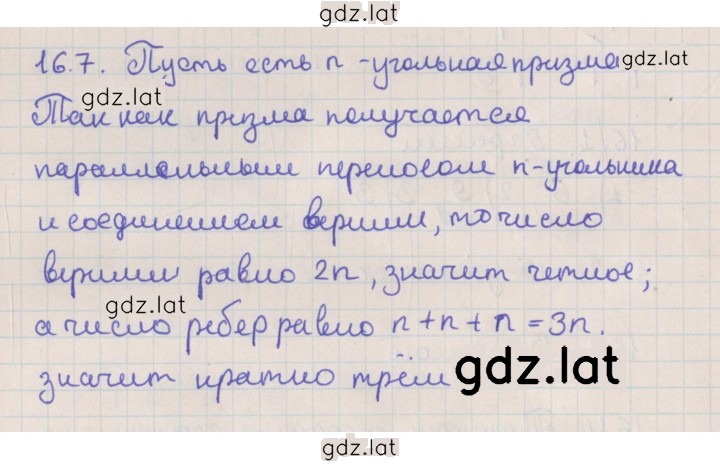 gdz.lat
16.7. Пусть есть n -угольная призма gdz.lat
gdz.lat
Так как призма получается
параллельным переносом n-угольника
и соединением вершин, то число
вершин равно 2n, значит четное;
gdz.lat
а число ребер равно n+n+n=3n.
значит кратно трём gdz.lat
gdz.lat